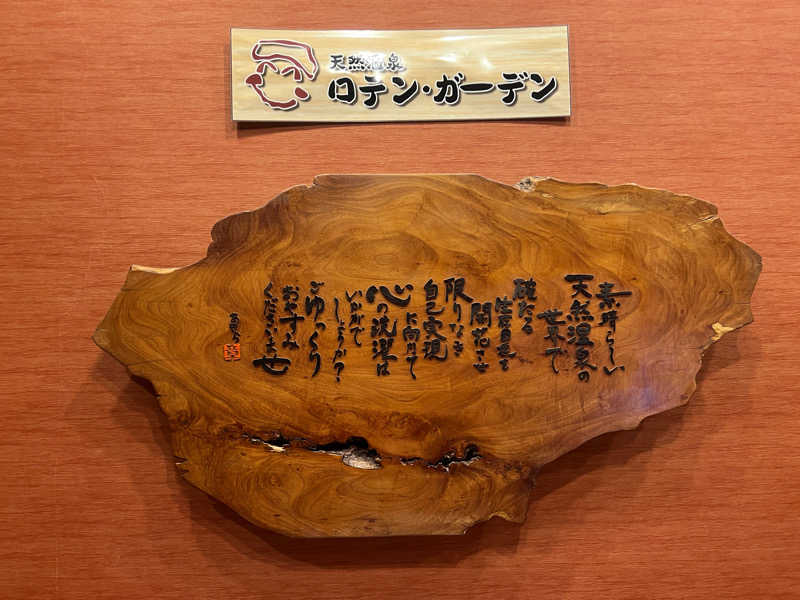 天然温泉
ロテン・ガーデン
素晴らしい
天然温泉の
世界で
確たる
生活目標を
開花させ
限りなき
自己実現
に向けて
心の洗濯は
いかがで
しょうか？
ごゆっくり
おやすみ
くださいませ